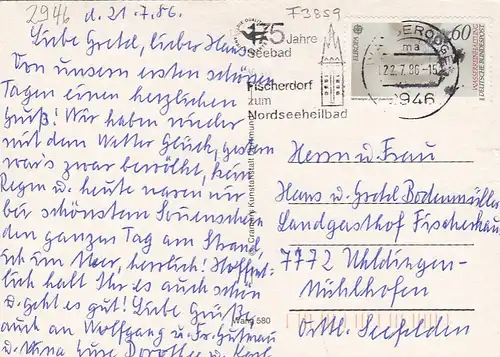 2946 d. 21.7.86.
F3859
Liebe Gretel, lieber Hans
Von unsern ersten schönen
Tagen einen herzlichen
Gruß! Wir haben wieder
mit dem Wetter Glück, gestern
war's zwar bewölkt, kein
Regen u. heute waren wir
bei schönstem Sonnenschein
den ganzen Tag am Strand,
ich im Meer, herrlich! Hoffent-
lich habt Ihr es auch schön
u. geht es gut! Liebe Grüße
auch an Wolfgang u. Fr.
u. Eure Dorothee u.
75 Jahre
Seebad
Fischerdorf
zum
Nordseeheilbad
22.7.86-15
2946
EUROPA
60
DEUTSCHE BUNDESPOST
Cramers Kunstanstalt Dortmund
Wang 580
Herrn u. Frau
Hans u. Gretel Bodenmüller
Landgasthof Fischerhaus
7772 Uhldingen-
Mühlhofen
Ortl. Seefelden